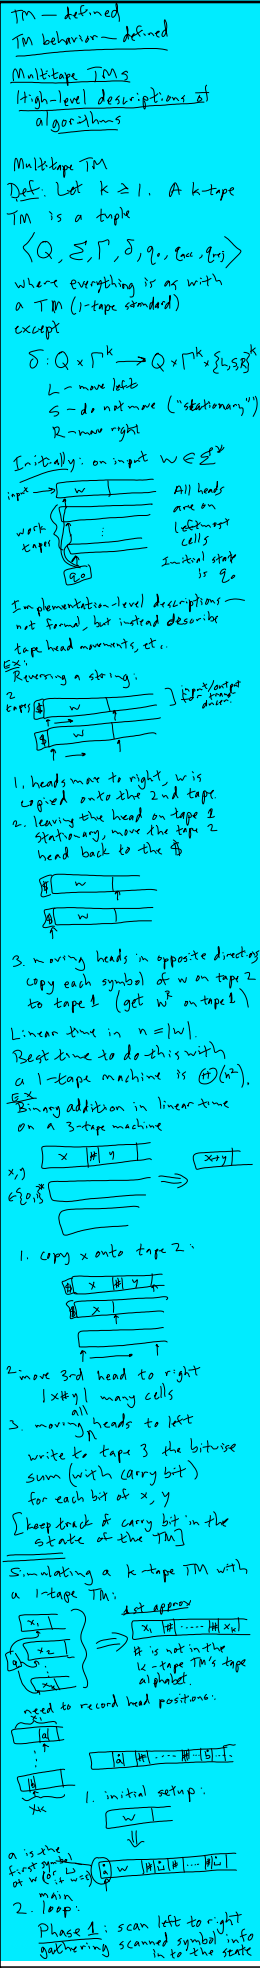 TM — defined
TM behavior — defined
Multitape TMs
High-level descriptions of
algorithms
Multitape TM
Def: Let k ≥ 1. A k-tape
TM is a tuple
⟨Q, Σ, Γ, δ, q₀, q_acc, q_rej⟩
where everything is as with
a TM (1-tape standard)
except
δ : Q × Γ^k → Q × Γ^k × {L,S,R}^k
L — move left
S — do not move ("stationary")
R — move right
Initially: on input w ∈ Σ*
input → w
work
tapes
q₀
All heads
are on
leftmost
cells
Initial state
is q₀
Implementation-level descriptions —
not formal, but instead describe
tape head movements, etc.
Ex:
Reversing a string:
2
tapes
$ w
$ w
input/output
1. heads move to right, w is
copied onto the 2nd tape
2. leaving the head on tape 1
stationary, move the tape 2
head back to the $
$ w
$ w
3. moving heads in opposite directions
copy each symbol of w on tape 2
to tape 1 (get w^R on tape 1)
Linear time in n = |w|.
Best time to do this with
a 1-tape machine is Θ(n²).
Ex
Binary addition in linear time
on a 3-tape machine
x # y
x, y
∈ {0,1}*
⟹ x+y
1. copy x onto tape 2:
$ x # y
$ x
2. move 3rd head to right
|x#y| many cells
3. moving all heads to left
write to tape 3 the bitwise
sum (with carry bit)
for each bit of x, y
[keep track of carry bit in the
state of the TM]
Simulating a k-tape TM with
a 1-tape TM:
x₁
x₂
⋮
x_k
q
⟹
1st approx
x₁ # ...... # x_k
# is not in the
k-tape TM's tape
alphabet.
need to record head positions:
x₁
a
⋮
b
x_k
ȧ # ---- # ḃ ...
1. initial setup:
w
⇓
ȧ w # ⊔̇ # ... # ⊔̇
a is the
first symbol
of w (or ⊔
if w = ε)
main
2. loop:
Phase 1: scan left to right
gathering scanned symbol info
in to the state